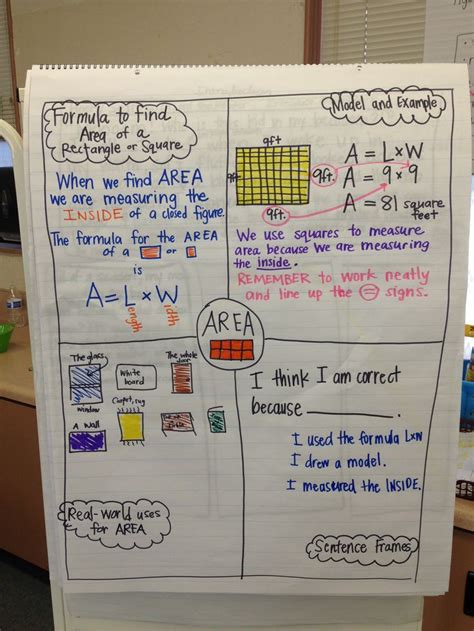 Formula to find
Area of a
Rectangle or Square
When we find AREA
we are measuring the
INSIDE of a closed figure.
The formula for the AREA
of a or
is
A=LxW
Length
Width
Model and Example
9ft
9ft
9ft.
9ft.
A = LxW
A = 9 x 9
A = 81 square
feet
We use squares to measure
area because we are measuring
the inside.
REMEMBER to work neatly
and line up the = signs.
AREA
The glass
window
White
board
The whole
door
A wall
Carpet, rug
Real-world uses
for AREA
I think I am correct
because
I used the formula LxW
I drew a model.
I measured the INSIDE.
Sentence Frames